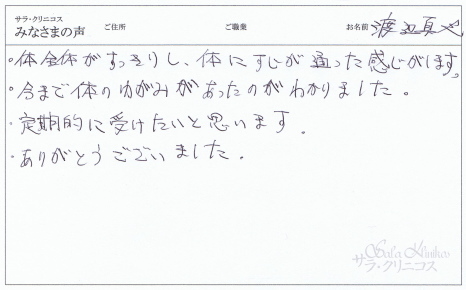 サラ・クリニコス
みなさまの声 ご住所 ご職業 お名前 渡辺
・体全体がすっきりし、体にすじが通った感じがします。
・今まで体のゆがみがあったのがわかりました。
・定期的に受けたいと思います.
・ありがとうございました.
Sala Klinikos
サラ・クリニコス